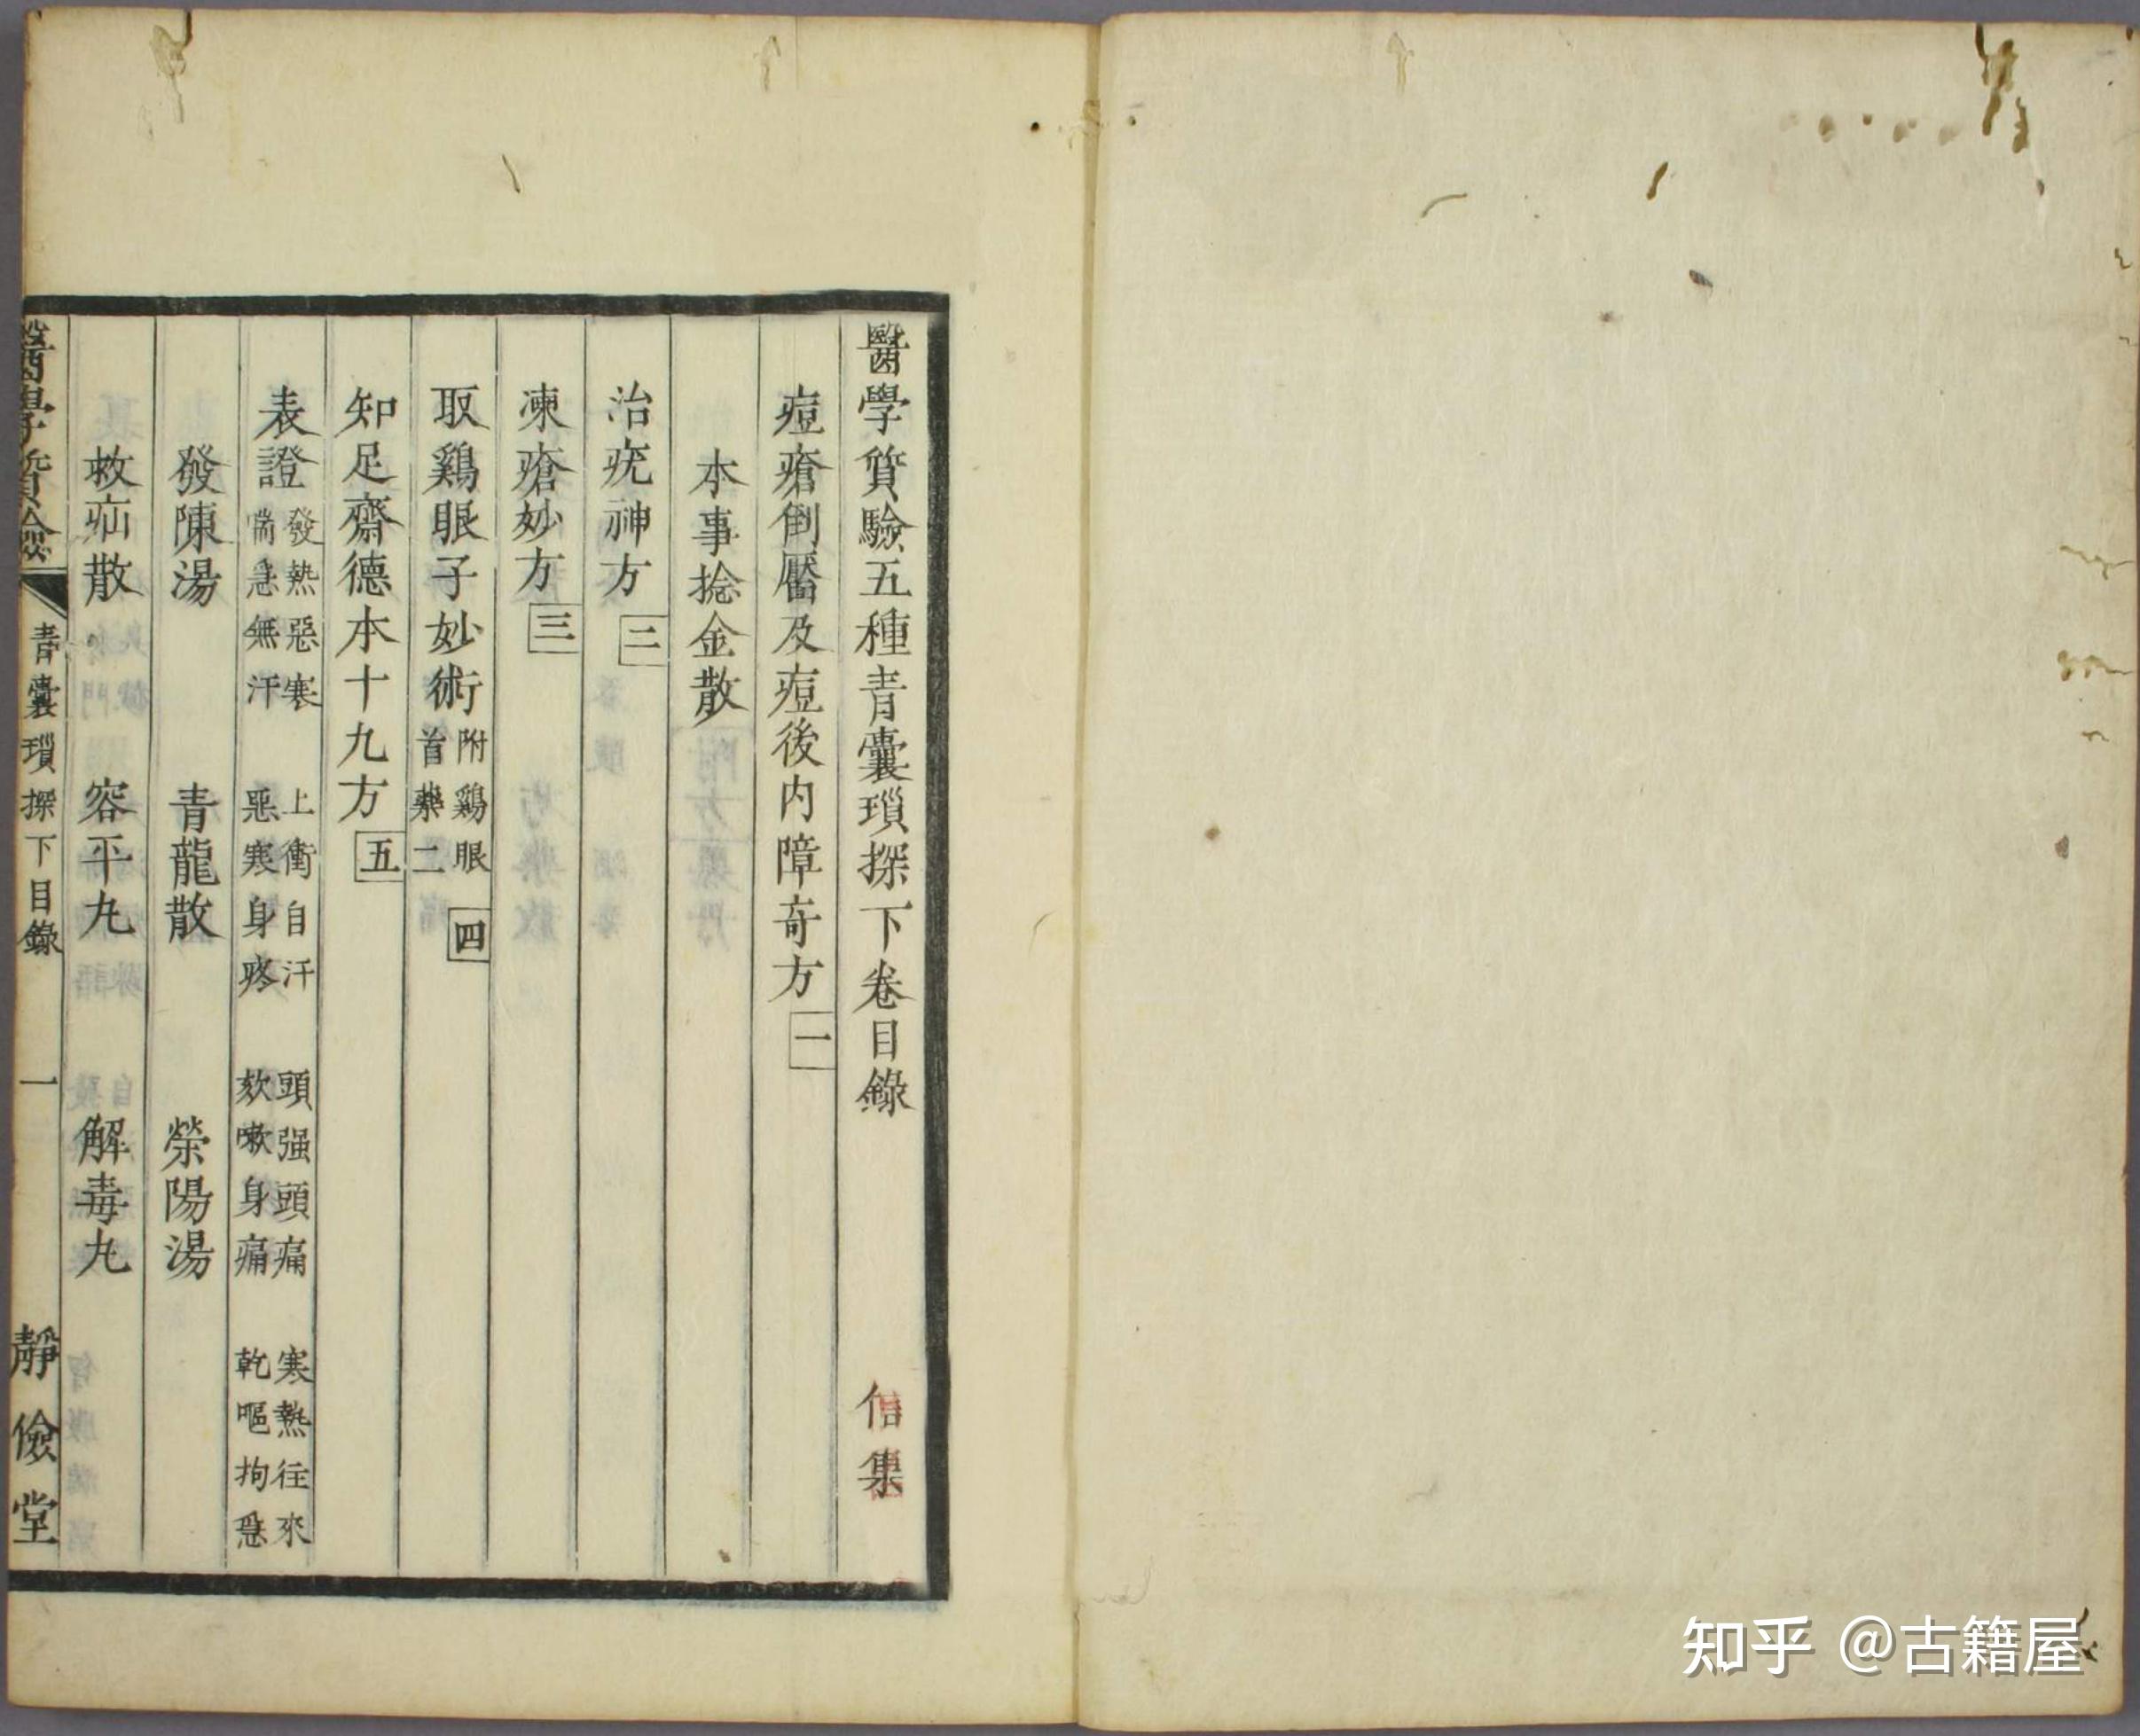 醫學質驗五種青囊瑣探下卷目錄 信集
痘瘡倒靨及痘後内障奇方 一
本事捻金散
治疣神方 二
凍瘡妙方 三
取鷄眼子妙術 附鷄眼首藥二 四
知足齋德本十九方 五
表證 發熱惡寒喘急無汗 上衝自汗惡寒身疼 頭强頭痛欬嗽身痛 寒熱往來乾嘔拘急
發陳湯 青龍散 榮陽湯
救疝散 容平丸 解毒丸
醫學質驗 青囊瑣探下目錄 一 靜儉堂
知乎 @古籍屋